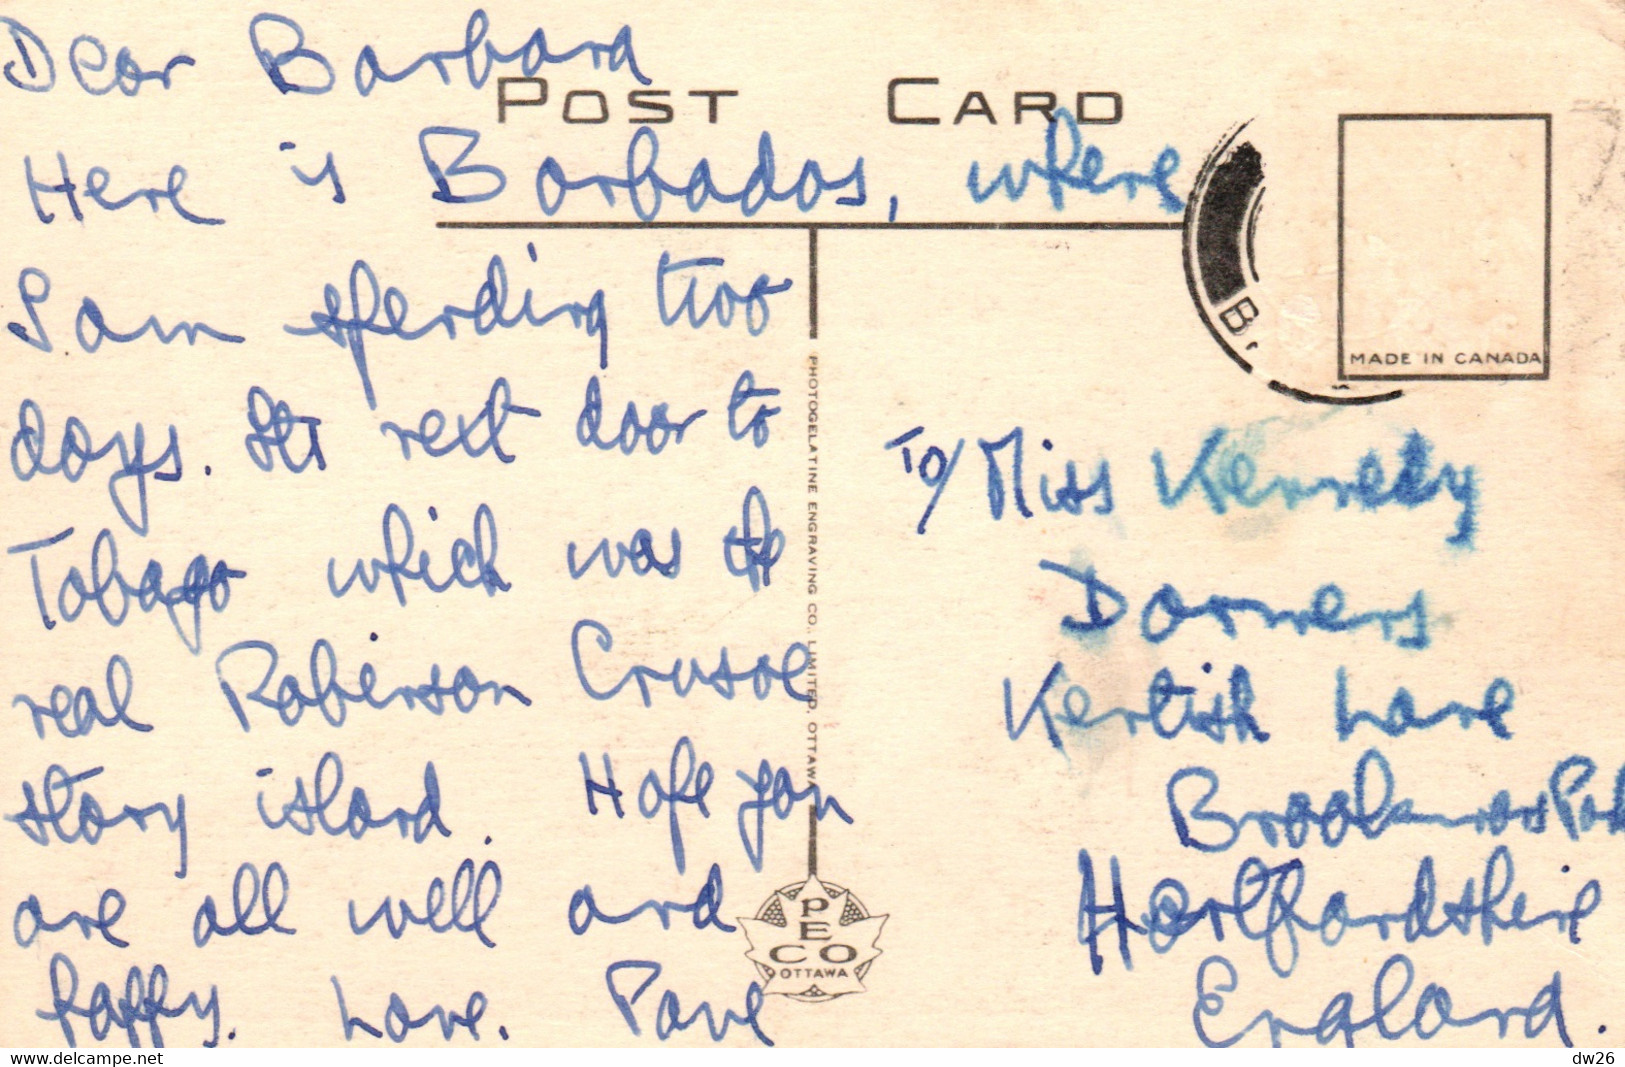 Dear Barbara
POST CARD
Here is Barbados, where
I am spending two
days. Its next door to
Tobago which was the
real Roberson Crusoe
story island. Hope you
are all well and
happy. Love.
MADE IN CANADA
PHOTOGELATINE ENGRAVING CO., LIMITED, OTTAWA
PECO
OTTAWA
To/ Miss Kennedy
Kentish Lane
Brookmans Park
Hertfordshire
England.
www.delcampe.net
dw26